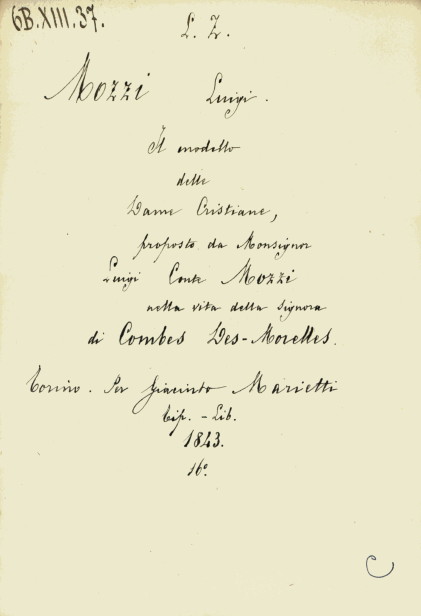 6B.XIII.37.
L. Z.
Mozzi Luigi.
Il modello
delle
Dame Cristiane,
proposto da Monsignor
Luigi Conte Mozzi
nella vita della Signora
di Combes Des-Morelles.
Torino. Per Giacinto Marietti
Tip. - Lib.
1843.
16º
C